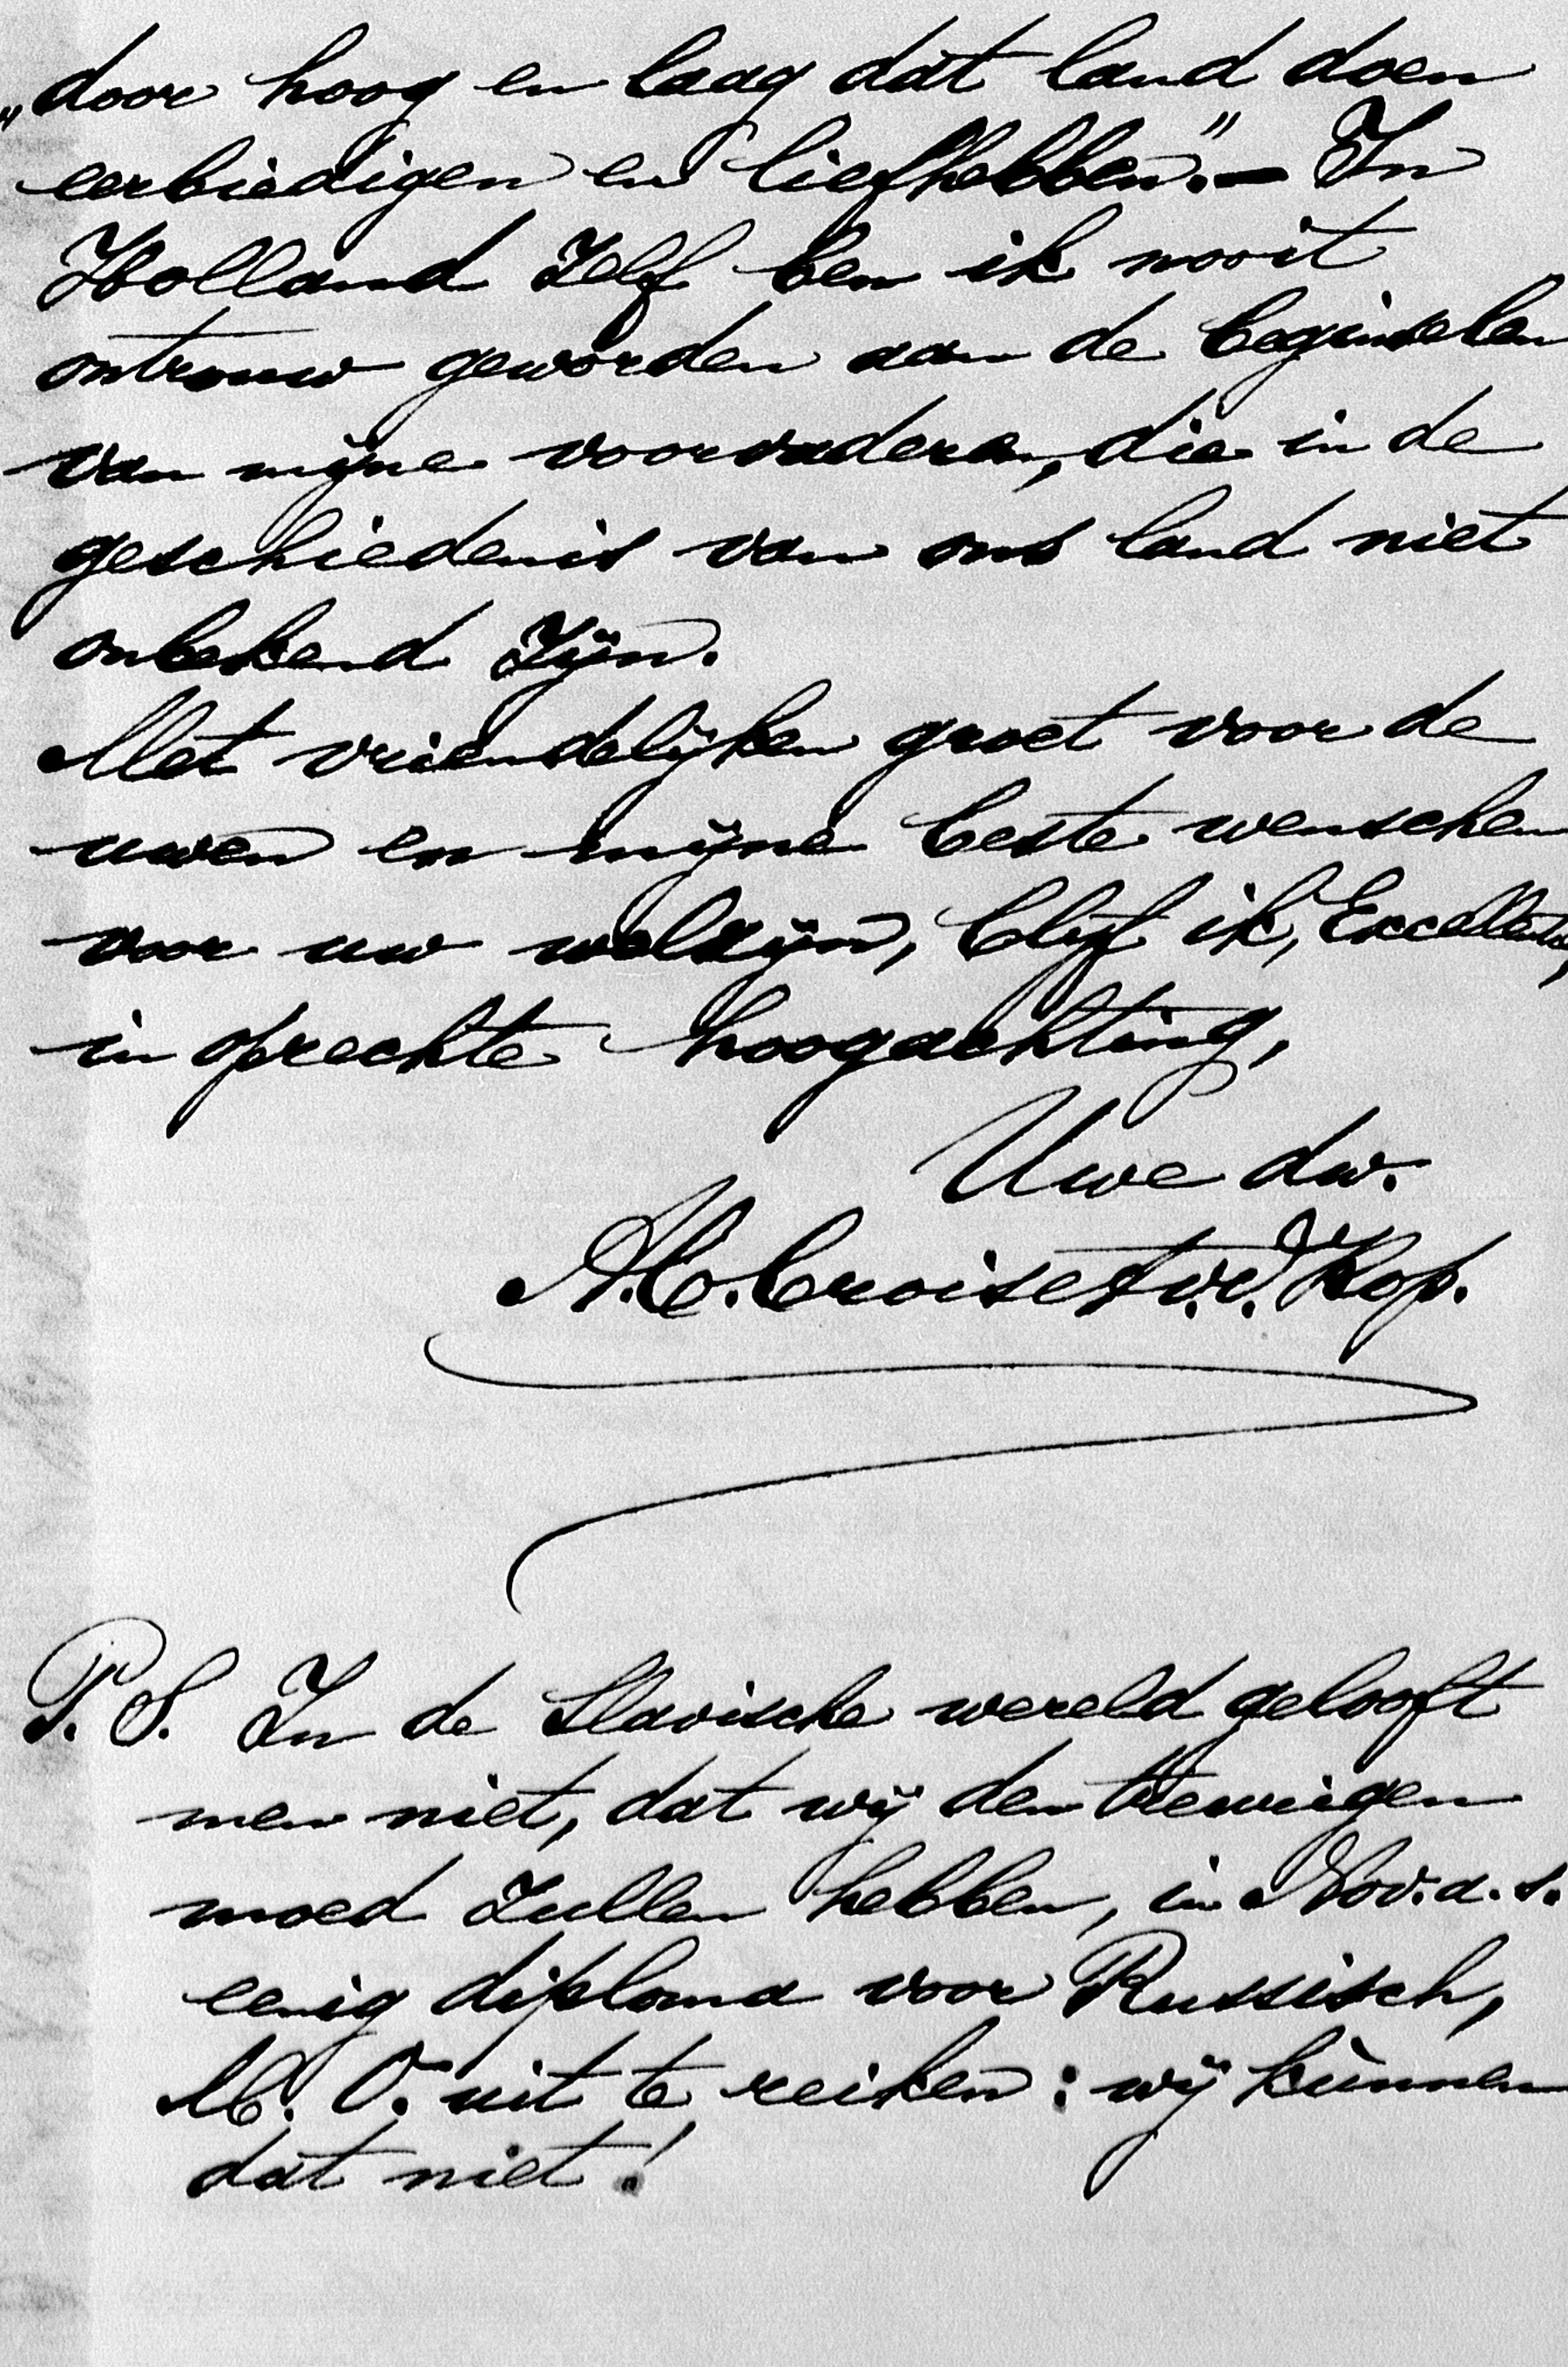 „door hoog en laag dàt land doen
eerbiedigen en liefhebben."— In
Holland zelf ben ik nooit
ontrouw geworden aan de beginselen
van mijne voorvaderen, die in de
geschiedenis van ons land niet
onbekend zijn.
Met vriendelijken groet voor de
uwen en mijne beste wenschen
voor uw welzijn, blijf ik, Excellentie,
in oprechte hoogachting,
Uwe dw.
A.C. Croiset v.d. Kop.
P.S. In de Slavische wereld gelooft
men niet, dat wij den treurigen
moed zullen hebben, in Nov. a.s.
eenig diploma voor Russisch,
M.O. uit te reiken: wij kùnnen
dàt niet!